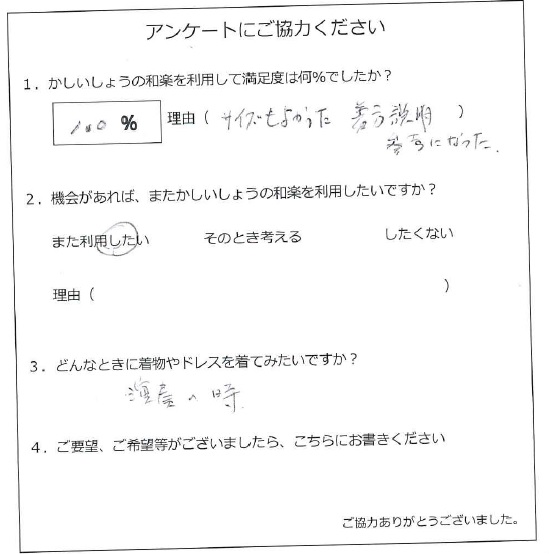 アンケートにご協力ください
1．かしいしょうの和楽を利用して満足度は何％でしたか？
100 ％ 理由（ サイズもよかった 着方説明 ）
参考になった.
2．機会があれば、またかしいしょうの和楽を利用したいですか？
また利用したい そのとき考える したくない
理由（ ）
3．どんなときに着物やドレスを着てみたいですか？
の時
4．ご要望、ご希望等がございましたら、こちらにお書きください
ご協力ありがとうございました。